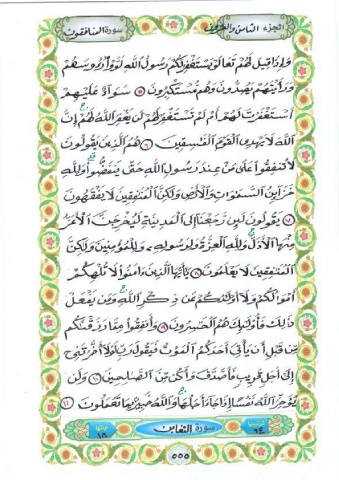 الجزء الثامن والعشرون سورة المنافقون
وَإِذَا قِيلَ لَهُمْ تَعَالَوْا يَسْتَغْفِرْ لَكُمْ رَسُولُ اللَّهِ لَوَّوْا رُءُوسَهُمْ
وَرَأَيْتَهُمْ يَصُدُّونَ وَهُم مُّسْتَكْبِرُونَ ٥ سَوَاءٌ عَلَيْهِمْ
أَسْتَغْفَرْتَ لَهُمْ أَمْ لَمْ تَسْتَغْفِرْ لَهُمْ لَن يَغْفِرَ اللَّهُ لَهُمْ إِنَّ
اللَّهَ لَا يَهْدِي الْقَوْمَ الْفَاسِقِينَ ٦ هُمُ الَّذِينَ يَقُولُونَ
لَا تُنفِقُوا عَلَىٰ مَنْ عِندَ رَسُولِ اللَّهِ حَتَّىٰ يَنفَضُّوا وَلِلَّهِ
خَزَائِنُ السَّمَوَاتِ وَالْأَرْضِ وَلَكِنَّ الْمُنَافِقِينَ لَا يَفْقَهُونَ
٧ يَقُولُونَ لَئِن رَّجَعْنَا إِلَى الْمَدِينَةِ لَيُخْرِجَنَّ الْأَعَزُّ
مِنْهَا الْأَذَلَّ وَلِلَّهِ الْعِزَّةُ وَلِرَسُولِهِ وَلِلْمُؤْمِنِينَ وَلَكِنَّ
الْمُنَافِقِينَ لَا يَعْلَمُونَ ٨ يَا أَيُّهَا الَّذِينَ ءَامَنُوا لَا تُلْهِكُمْ
أَمْوَالُكُمْ وَلَا أَوْلَادُكُمْ عَن ذِكْرِ اللَّهِ وَمَن يَفْعَلْ
ذَلِكَ فَأُولَئِكَ هُمُ الْخَاسِرُونَ ٩ وَأَنفِقُوا مِن مَّا رَزَقْنَاكُم
مِّن قَبْلِ أَن يَأْتِيَ أَحَدَكُمُ الْمَوْتُ فَيَقُولَ رَبِّ لَوْلَا أَخَّرْتَنِي
إِلَىٰ أَجَلٍ قَرِيبٍ فَأَصَّدَّقَ وَأَكُن مِّنَ الصَّالِحِينَ ١٠ وَلَن
يُؤَخِّرَ اللَّهُ نَفْسًا إِذَا جَاءَ أَجَلُهَا وَاللَّهُ خَبِيرٌ بِمَا تَعْمَلُونَ ١١
ترتيبها ٦٤ سورة التغابن آياتها ١٨
٥٥٥